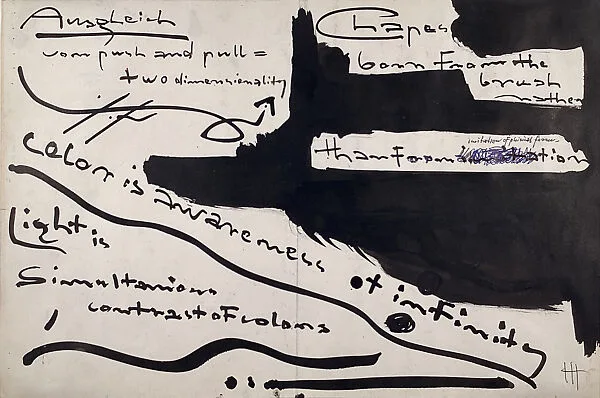 Ausgleich
vom push and pull =
two dimensionality
Chapes
born from the
brush
rather
imitation of pluvial forms
than from imitation
color is awareness of infinity
Light is
Simultanious
contrast of colors
HH